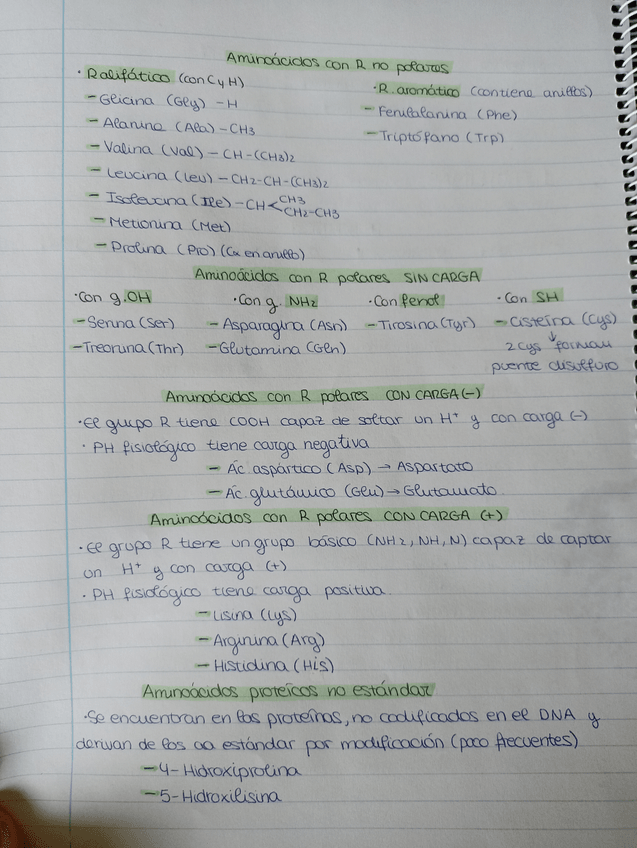 Aminoácidos con R no polares
· R alifático (con C y H)
- Glicina (Gly) - H
- Alanina (Ala) - CH3
- Valina (Val) - CH-(CH3)2
- Leucina (Leu) - CH2-CH-(CH3)2
- Isoleucina (Ile) - CH < CH3
CH2-CH3
- Metionina (Met)
- Prolina (Pro) (Cα en anillo)
· R. aromático (contiene anillos)
- Fenilalanina (Phe)
- Triptófano (Trp)
Aminoácidos con R polares SIN CARGA
· Con g. OH
- Serina (Ser)
- Treonina (Thr)
· Con g. NH2
- Asparagina (Asn)
- Glutamina (Gln)
· Con fenol
- Tirosina (Tyr)
· Con SH
- Cisteína (Cys)
↓
2 Cys forman
puente disulfuro
Aminoácidos con R polares CON CARGA (-)
· El grupo R tiene COOH capaz de soltar un H+ y con carga (-)
· PH fisiológico tiene carga negativa
- Ác. aspártico (Asp) → Aspartato
- Ác. glutámico (Glu) → Glutamato
Aminoácidos con R polares CON CARGA (+)
· El grupo R tiene un grupo básico (NH2, NH, N) capaz de captar
un H+ y con carga (+)
· PH fisiológico tiene carga positiva.
- Lisina (Lys)
- Arginina (Arg)
- Histidina (His)
Aminoácidos proteicos no estándar
· Se encuentran en las proteínas, no codificados en el DNA y
derivan de los aa estándar por modificación (poco frecuentes)
- 4-Hidroxiprolina
- 5-Hidroxilisina